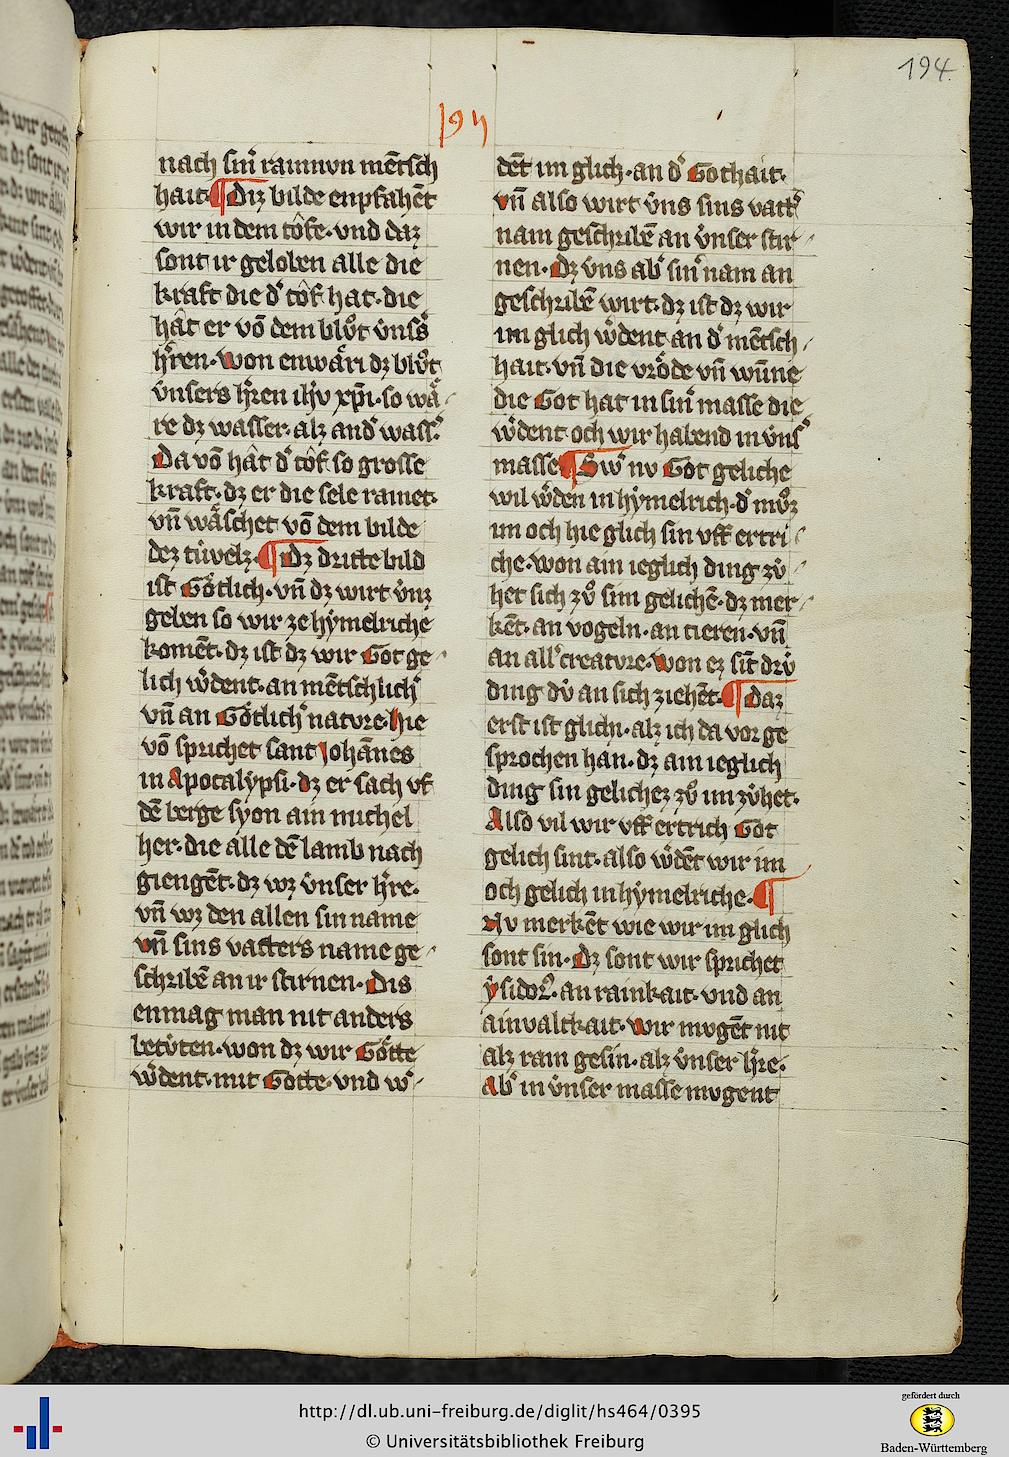 194
nach sinr̄ rainnvn mēsch
hait. ¶ Diz bilde enpfahēt
wir in dem tôfe. vnd daz
sont ir geloben alle die
kraft die dˀ tôf hat. die
hât er vō dem blůt v́nsˀs
hˀren. Won enwåri dz blůt
v́nsers hˀren ih̄v xp̄i. so wå
re dz wasser. alz andˀ wassˀ.
Da vō hât dˀ tôf so grosse
kraft. dz er die sele rainet.
vn̄ wåschet vō dem bilde
dez túvelz. ¶ Dz dritte bild
ist Götlich. vn̄ dz wirt v́nz
geben so wir ze hýmelriche
komēt. dz ist dz wir Got ge
lich wˀdent. an mētschlichˀ
vn̄ an Götlichˀ natvre. hie
vō sprichet sant Johānes
in Apocalýpsi. dz er sach vf
dē berge syon ain michel
her. die alle dē lamb nach
giengēt. dz wz v́nser hˀre.
vn̄ wz den allen sin name
vn̄ sins vatters name ge
schribē an ir stirnen. Dis
enmag man nit anders
betv́ten. won dz wir Götte
wˀdent. mit Gotte. vnd wˀ
dēt im glich. an dˀ Gothait.
vn̄ also wirt v́ns sins vattˀs
nam geschribē an v́nser stir
nen. Dz v́ns abˀ sin nam an
geschribē wirt. dz ist dz wir
im glich wˀdent an dˀ mētsch
hait. vn̄ die vröde vn̄ wūne
die Got hat in sinˀ masse die
wˀdent och wir habend in v́nsˀ
masse ¶ Swˀ nv Got geliche
wil wˀden in hýmelrich. dˀ můz
im och hie glich sin vff ertri
che. won am ieglich ding zv́
het sich zů sim gelichē. dz mer
kēt. an vogeln. an tieren. vn̄
an allˀ creatvre. Won ez sīt drv́
ding dv́ an sich ziehēt. ¶ Daz
erst ist glichi. alz ich da vor ge
sprochen han. dz ain ieglich
ding sin gelichez zů im zv́het.
Also vil wir vff ertrich Got
gelich sint. also wˀdēt wir im
och gelich in hýmelriche. ¶
Nv merkēt wie wir im glich
sont sin. Dz sont wir sprichet
ýsidorˀ. an rainkait. vnd an
ainvaltkait. Wir mvgēt nit
alz rain gesin. alz v́nser hˀre.
Abˀ in v́nser masse mvgent
http://dl.ub.uni-freiburg.de/diglit/hs464/0395
© Universitätsbibliothek Freiburg
gefördert durch
Baden-Württemberg